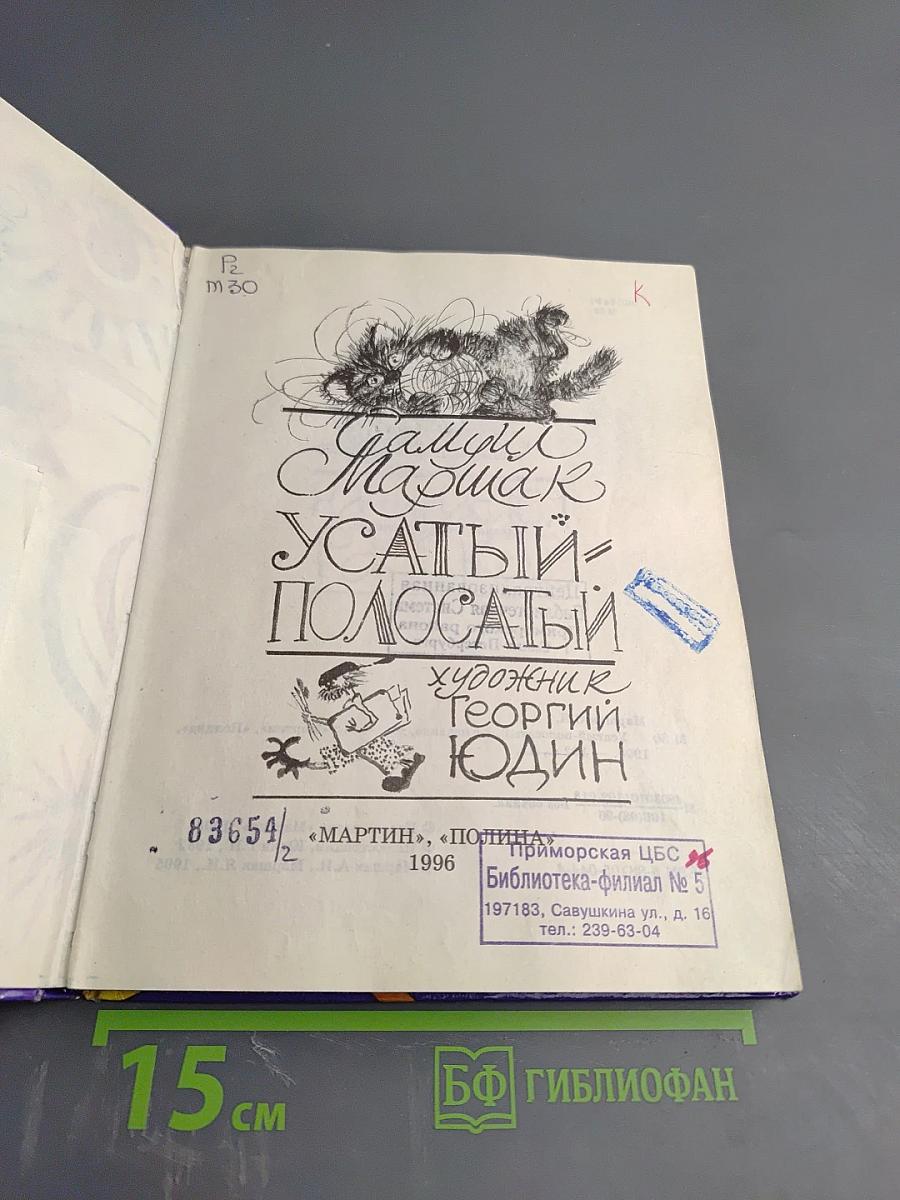 Р2
m 30
К
Самуил
Маршак
УСАТЫЙ-
ПОЛОСАТЫЙ
художник
ГЕОРГИЙ
ЮДИН
83654/2
«МАРТИН», «ПОЛИНА»
1996
Приморская ЦБС
Библиотека-филиал № 5
197183, Савушкина ул., д. 16
тел.: 239-63-04
15 см
БФ ГИБЛИОФАН